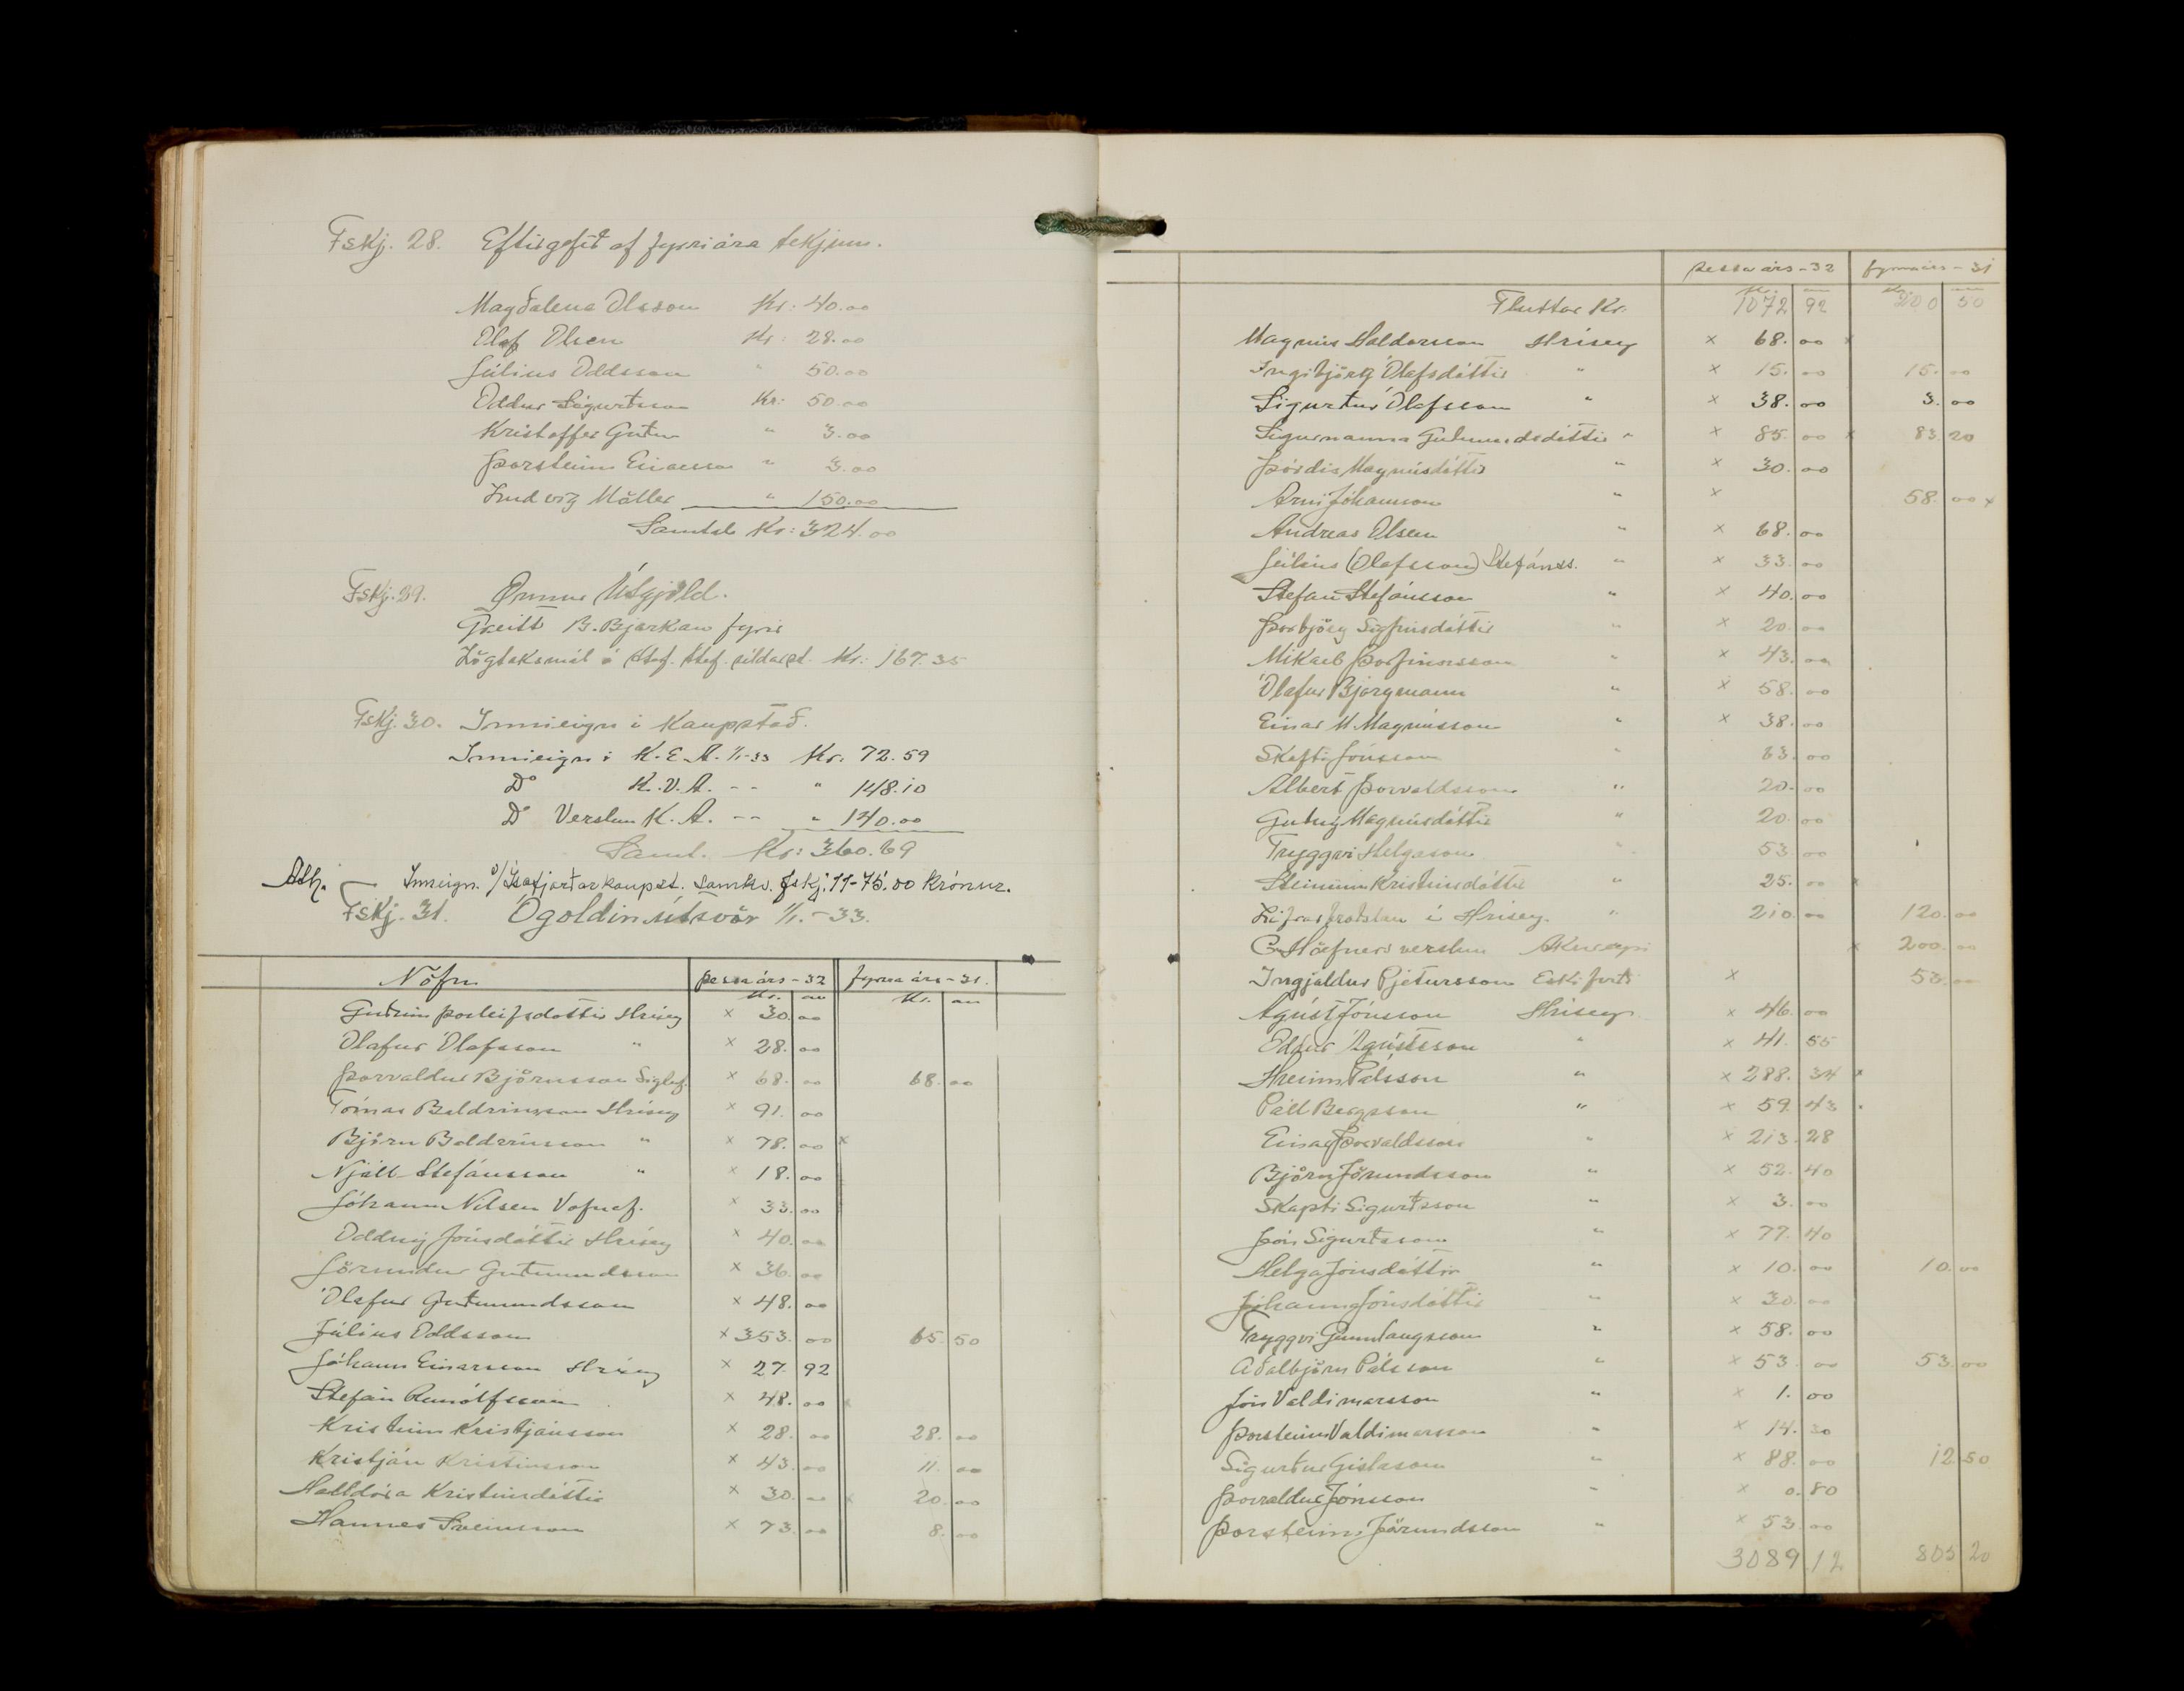 Fskj. 28. Eftirgefið af fyrri ára tekjum.
Magðalena Olsson Kr: 40.00
Olaf Olsen Kr: 28.00
Júlíus Oddsson " 50.00
Oddur Sigurðsson Kr: 50.00
Kristoffer Guðm " 3.00
Þorsteinn Einarsson " 3.00
Ludvig Möller " 150.00
Samtals Kr: 324.00
Fskj. 29. Önnur Útgjöld.
Greitt B. Bjarkan fyrir
Lögtaksmál á Stef. Stef. síldarst. Kr: 167.35
Fskj. 30. Innieign í Kaupstað.
Innieign í K.E.A. 1/1-33 Kr. 72.59
Do K.V.A. -- " 148.10
Do Verslun K.A. -- " 140.00
Saml. Kr: 360.69
Ath. Inneign. v/ Ísafjarðarkaupst. samkv. fskj. 11-75.00 krónur.
Fskj. 31. Ógoldin útsvör 1/1.-33.
Nöfn þessa árs-32 fyrra árs-31.
Kr. au Kr. au
Guðrún Þorleifsdóttir Hrísey × 30.00
Olafur Olafsson " × 28.00
Þorvaldur Björnsson Siglf. × 68.00 68.00
Tómas Baldvinsson Hrísey × 91.00
Björn Baldvinsson " × 78.00 ×
Njáll Stefánsson " × 18.00
Jóhann Nilsen Vopnaf. × 33.00
Oddný Jónsdóttir Hrísey × 40.00
Jörundur Guðmundsson × 36.00
Ólafur Guðmundsson × 48.00
Júlíus Oddsson × 353.00 65.50
Jóhann Einarsson Hrísey × 27.92
Stefán Runólfsson × 48.00 ×
Kristinn Kristjánsson × 28.00 28.00
Kristján Kristinsson × 43.00 11.00
Halldóra Kristinsdóttir × 30.00 × 20.00
Hannes Sveinsson × 73.00 8.00
þessa árs-32 fyrra árs-31
Kr. au Kr. au
Fluttar Kr. 1072 92 200 50
Magnús Haldorsson Hrísey × 68.00 ×
Ingibjörg Ólafsdóttir " × 15.00 15.00
Sigurður Ólafsson " × 38.00 3.00
Sigurnanna Guðmundsdóttir " × 85.00 × 83.20
Þórdís Magnúsdóttir " × 30.00
Arni Jóhannsson " × 58.00 ×
Andreas Olsen " × 68.00
Júlíus (Olafsson) Stefánss. " × 33.00
Stefan Stefánsson " × 40.00
Þorbjörg Sigfinsdóttir " × 20.00
Mikael Þorfinnsson " × 43.00
Ólafur Bjargmann " × 58.00
Einar M. Magnússon " × 38.00
Skafti Jónsson " 63.00
Albert Þorvaldsson " 20.00
Guðný Magnúsdóttir " 20.00
Tryggvi Helgason " 53.00
Steinunn Kristinsdóttir " 25.00 ×
Lifrarbræðslan í Hrísey. " 210.00 120.00
Höefners verslun Akureyri × 200.00
Ingjaldur Pjetursson Eskifirði × 53.00
Agúst Jónsson Hrísey × 46.00
Oddur Ágústsson " × 41.55
Hreinn Pálsson " × 288.34 ×
Páll Bergsson " × 59.43
Einar Þorvaldsson " × 213.28
Björn Jörundsson " × 52.40
Skapti Sigurðsson " × 3.00
Þóir Sigurðsson " × 77.40
Helga Jónsdóttir " × 10.00 10.00
Jóhanna Jónsdóttir " × 30.00
Tryggvi Gunnlaugsson " × 58.00
Aðalbjörn Pálsson " × 53.00 53.00
Jón Valdimarsson " × 1.00
Þorsteinn Valdimarsson " × 14.30
Sigurður Gíslason " × 88.00 12 50
Þorvaldur Jónsson " × 0.80
Þorsteinn Jörundsson " × 53.00
3089.12 805 20